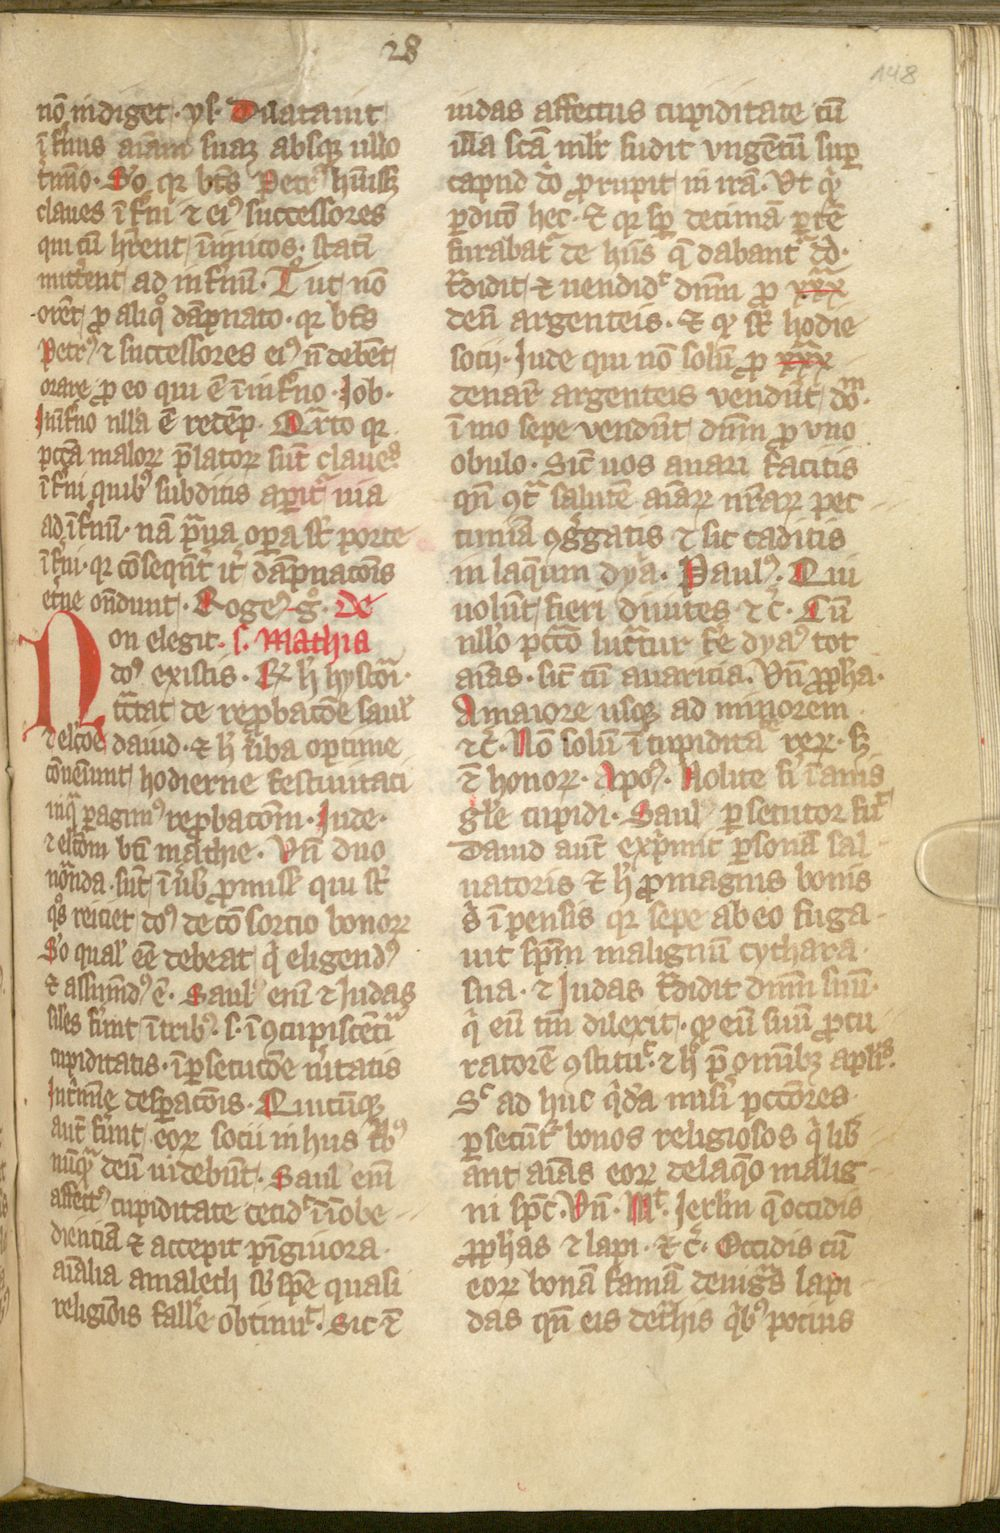 28
148
nō indiget · ys · Dilatauit
īfnus aīam suaꝫ absqꝫ ullo
t̓mīo · Sō qꝛ bt̄s Petrꝰ hūisꝫ
claues īfni ⁊ eiꝰ successores
qui cū hr̄ent īimicos · statī
mitt̓ent ad infnū · ut nō
orēt ꝓ aliqͦ dāpnato · qꝛ bt̄s
Petrꝰ ⁊ successores eiꝰ n̄ debēt
orare ꝓ eo qui ē īinfno · Job ·
Inīfno nlla ē redēp · qꝛ
pccā maloꝝ p̄latoꝝ sūt claues
īfni quibꝰ subditis apit᷑ uia
ad īfnū · nā opa st̄ porte
īfni · qꝛ cōseqn̄t᷑ dāpnatōis
et̓ne on̄dunt · Rogeꝰ gͦ · De
on elegit · s · Mathia
doꝰ existis · hystoīa ·
tͣctat de rep̄batōe saul᷑
⁊ elc̄oe dauid · ⁊ hͨ uͨba optime
cōueīunt hodierne festiuitati
inqͣ pagimꝰ rep̄batōm · Jude ·
⁊ elc̄om bt̄i mathie · Vn̄ duo
nōnda · sūt ī ꝓmiss̄ qui st̄
qͦs reiciet doꝰ de cōsorcio bonoꝝ
Sͦo qual᷑ eē debeat qͥ eligendꝰ
⁊ assumdꝰ ē · Saulꝰ enī ⁊ Judas
siłes fūnt ītribꝰ · s · īꝯcupiscētia
cupiditatis · īpsecutōe uͥtatis
Int̓mīe despatōis · Quicūqꝫ
aut̄ fūnt eoꝝ socii in hiis tͥbꝰ
nūqͣ deū uidebūt · Saul enī
affectꝰ cupiditate cecidͭ īiobe
dientiā ⁊ accepit pīguiora
aīalia amalech sb̄ spē quasi
religiōis fall᷑e obtinuͭ · Sic ⁊
iudas affectus cupiditate cū
illa sc̄a ml̓r fudit vngētū sup
capud dō prupit in irā · Vt qͥ
pdicō hec · Et qꝛ sp̄ decimā ptē
furabat᷑ de hiis q̄ dabant᷑ dō ·
t̓didit ⁊ uendidͭ dn̄m ꝓ xxx
den̄ argenteis · Et qꝫ st̄ hodie
socii · Jude qui nō solū ꝓ xxx
denar̄ argenteis vendūt dōm ·
ī mo sepe vendūt dn̄m ꝓ vno
obulo · Sic̄ uos auari facitis
qn̄ ꝯtͣ salutē aīaꝝ nr̄aꝝ pec
cuniā ꝯgͣgatis ⁊ sic caditis
in laqueum dyā · Paulꝰ · Qui
uolūt fieri diuites ⁊c̄ · Cū
nllo pccō lucͣtur dyaꝰ tot
aīas · sic̄ cū auaricia · Vn̄ ꝓpha ·
A maiore usqꝫ ad minorem
⁊c̄ · Nō solū ī cupiditā reꝝ · sꝫ
⁊ honoꝝ · Apoꝰ · Nolite fi īanis
głe cupidi · Saulꝰ psecutor fuͭ
Dauid aut̄ exp̄mit psonā sal
uatoris ⁊ hͨ ꝓ magnis bonis
s̓ īpensis qꝛ sepe ab eo fuga
uit sp̄m malignū cythara
sua · ⁊ Judas t̓didit dn̄m suū ·
qͥ eū tm̄ dilexit · qꝫ eū suū ꝓcu
ratorē ꝯstituͭ · ⁊ hͨ p̄ omībꝫ apl̄is ·
Sͨ ad huc qͥdā miſi pctōres
psecūt᷑ bonos religiosos qͥ lib̄
ant aīas eoꝝ delaqͦo malig
ni sp̄c · Vn̄ · Mͭ · Jerl̄m q̄ occidis
ꝓphas ⁊ lapi · ⁊c̄ · Occidis cū
eoꝝ bonā famā denigͣs lapi
das qn̄ eis detͣhis qͥbꝰ potius